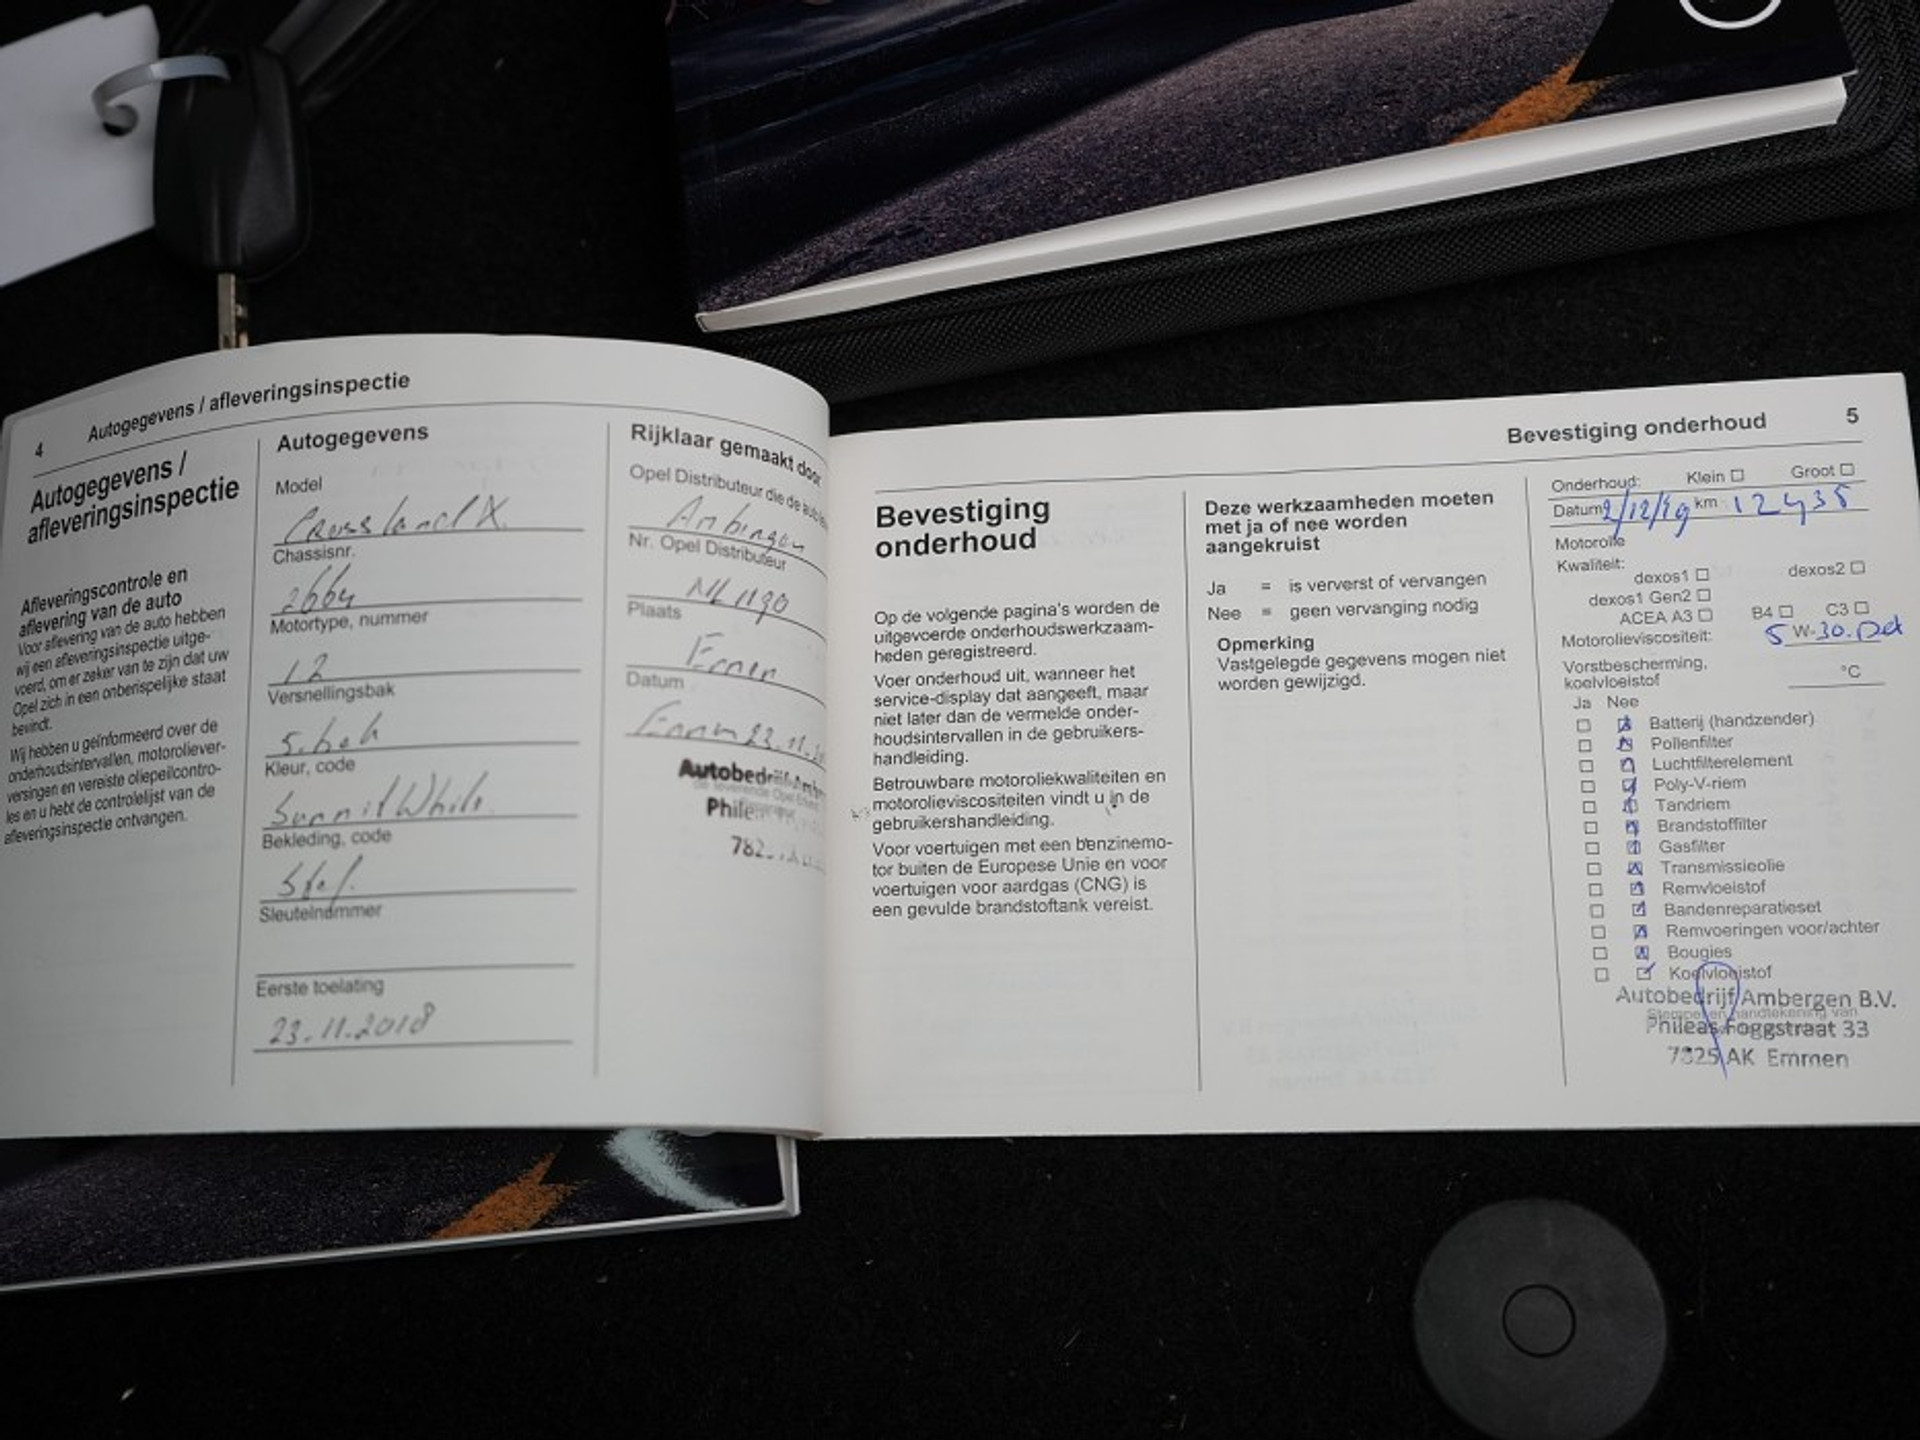 4 Autogegevens / afleveringsinspectie
Autogegevens /
afleveringsinspectie
Afleveringscontrole en
aflevering van de auto
Voor aflevering van de auto hebben
wij een afleveringsinspectie uitge-
voerd, om er zeker van te zijn dat uw
Opel zich in een onberispelijke staat
bevindt.
Wij hebben u geïnformeerd over de
onderhoudsintervallen, motoroliever-
versingen en vereiste oliepeilcontro-
les en u hebt de controlelijst van de
afleveringsinspectie ontvangen.
Autogegevens
Model
Crossland X.
Chassisnr.
2664
Motortype, nummer
12
Versnellingsbak
5.bak
Kleur, code
Summit White.
Bekleding, code
Stof.
Sleutelnummer
Eerste toelating
23.11.2018
Rijklaar gemaakt door
Opel Distributeur die de auto
Ambergen
Nr. Opel Distributeur
NL 1190
Plaats
Emmen
Datum
Emmen 23.11.
Autobedrijf
Phile
782
Bevestiging onderhoud 5
Bevestiging
onderhoud
Op de volgende pagina's worden de
uitgevoerde onderhoudswerkzaam-
heden geregistreerd.
Voer onderhoud uit, wanneer het
service-display dat aangeeft, maar
niet later dan de vermelde onder-
houdsintervallen in de gebruikers-
handleiding.
Betrouwbare motoroliekwaliteiten en
motorolieviscositeiten vindt u in de
gebruikershandleiding.
Voor voertuigen met een benzinemo-
tor buiten de Europese Unie en voor
voertuigen voor aardgas (CNG) is
een gevulde brandstoftank vereist.
Deze werkzaamheden moeten
met ja of nee worden
aangekruist
Ja = is ververst of vervangen
Nee = geen vervanging nodig
Opmerking
Vastgelegde gegevens mogen niet
worden gewijzigd.
Onderhoud: Klein Groot
Datum 2/12/19 km 12435
Motorolie
Kwaliteit:
dexos1 dexos2
dexos1 Gen2
ACEA A3 B4 C3
Motorolieviscositeit: 5 W-30.
Vorstbescherming,
koelvloeistof °C
Ja Nee
Batterij (handzender)
Pollenfilter
Luchtfilterelement
Poly-V-riem
Tandriem
Brandstoffilter
Gasfilter
Transmissieolie
Remvloeistof
Bandenreparatieset
Remvoeringen voor/achter
Bougies
Koelvloeistof
Autobedrijf Ambergen B.V.
Stempel en handtekening van
Phileas Foggstraat 33
7825 AK Emmen